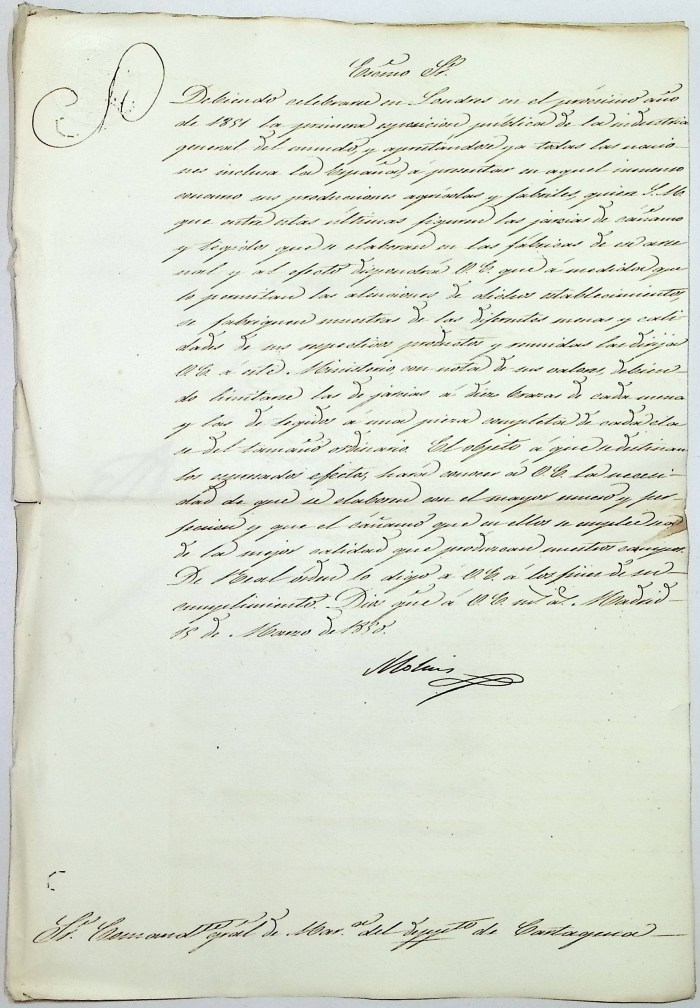 Escmo Sr.
Debiendo celebrarse en Londres en el prócsimo año
de 1851 la primera esposicion pública de la industria
general del mundo, y aprestándose ya todas las nacio
nes inclusa la España, á presentar en aquel inmenso
concurso sus producciones agrícolas y fabriles, quiere S. M.
que entre estas últimas figuren las jarcias de cáñamo
y tegidos que se elaboran en las fábricas de ese arse
nal y al efecto dispondrá V.E. que á medida que
lo permitan las atenciones de dichos establecimientos,
se fabriquen muestras de las diferentes menas y cali
dades de sus respectivos productos y reunidas las dirija
V.E. á este Ministerio, con nota de sus valores, debien
do limitarse las de jarcias á diez brazas de cada mena
y las de tegidos á una pieza completa de cada cla
se del tamaño ordinario. El objeto á que se destinan
los espresados efectos, hará conocer á V.E. la necesi
dad de que se elaboren con el mayor esmero y per
feccion y que el cáñamo que en ellos se emplee sea
de la mejor calidad que produzcan nuestros campos.
De Real órden lo digo á V.E. á los fines de su
cumplimiento. Dios gue á V.E. ms. as. Madrid
18 de Marzo de 1850.
Molins
Sr. Comandte. gral de Mar.na del deppto de Cartagena